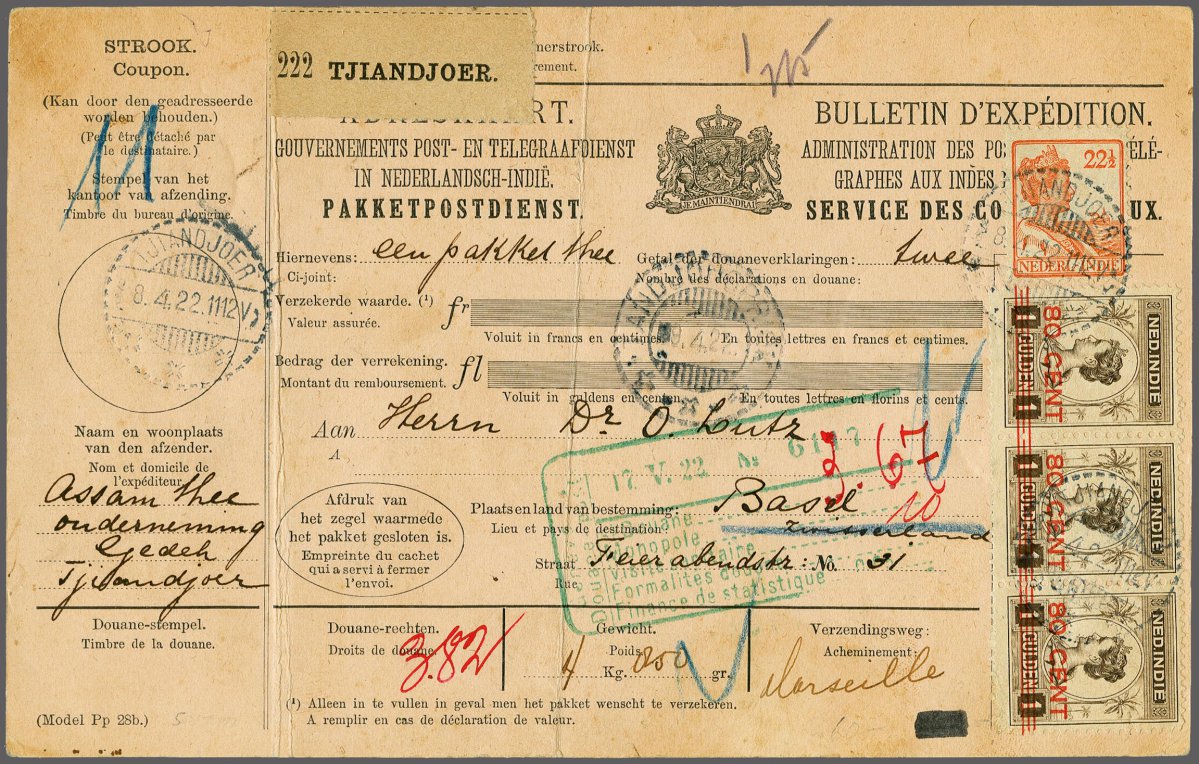 STROOK.
Coupon.
(Kan door den geadresseerde
worden behouden.)
(Peut être détaché par
le destinataire.)
11
Stempel van het
kantoor van afzending.
Timbre du bureau d'origine.
TJIANDJOER
8.4.22.1112V
Naam en woonplaats
van den afzender.
Nom et domicile de
l'expéditeur
Assam thee
onderneming
Gedeh
Tjiandjoer
Douane-stempel.
Timbre de la douane.
(Model Pp 28b.)
5
222 TJIANDJOER.
nerstrook.
rement.
GOUVERNEMENTS POST- EN TELEGRAAFDIENST
IN NEDERLANDSCH-INDIË.
PAKKETPOSTDIENST.
JE MAINTIENDRAI
BULLETIN D'EXPÉDITION.
ADMINISTRATION DES PO TÉLÉ-
GRAPHES AUX INDES
SERVICE DES CO UX.
22½
NEDERL INDIE
Hiernevens: een pakket thee
Ci-joint:
Getal der douaneverklaringen: twee
Nombre des déclarations en douane:
Verzekerde waarde. (¹) fr
Valeur assurée.
Voluit in francs en centimes. En toutes lettres en francs et centimes.
Bedrag der verrekening. fl
Montant du remboursement.
Voluit in guldens en centen. En toutes lettres en florins et cents.
9.4.22.
Aan Herrn Dr O. Lutz
A
17. V. 22 No
2.67
10
Plaats en land van bestemming: Basel
Lieu et pays de destination: Zwisserland
Straat Feierabendstr: No. 31
Rue
Douane
Monopole
Formalités
Finance de statistique
Afdruk van
het zegel waarmede
het pakket gesloten is.
Empreinte du cachet
qui a servi à fermer
l'envoi.
Douane-rechten.
Droits de douane.
3.82
Gewicht.
Poids.
4 Kg. 850 gr.
Verzendingsweg:
Acheminement:
Marseille
(¹) Alleen in te vullen in geval men het pakket wenscht te verzekeren.
A remplir en cas de déclaration de valeur.
NED.INDIE
80 CENT
1 GULDEN 1
NED.INDIE
80 CENT
1 GULDEN 1
NED.INDIE
80 CENT
1 GULDEN 1